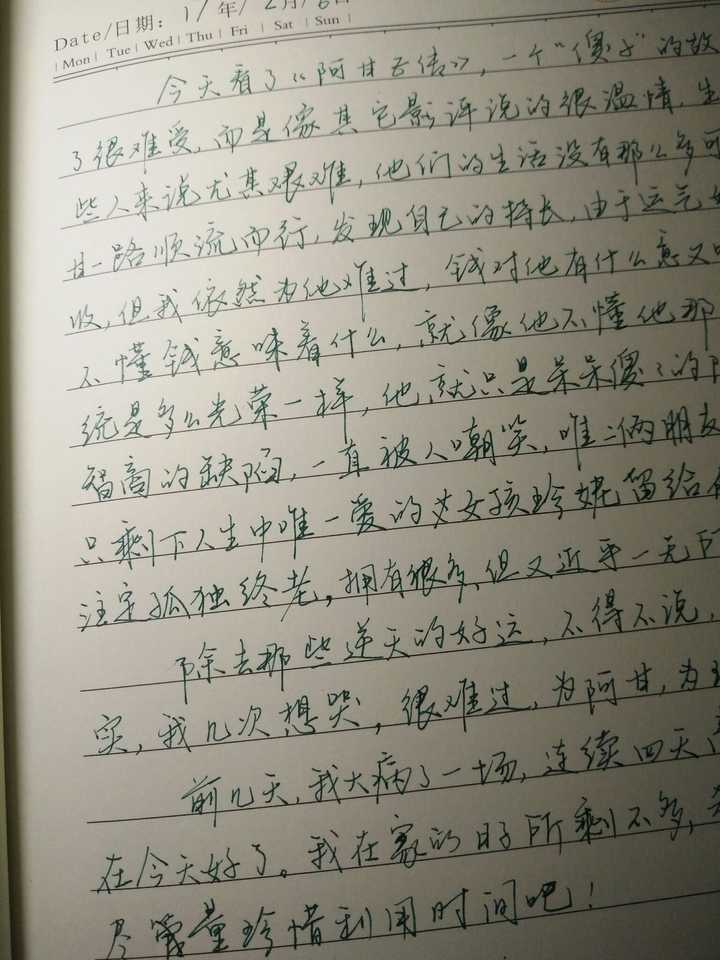 Date/日期: 17年/2月/6日
Mon Tue Wed Thu Fri Sat Sun
今天看了《阿甘正传》,一个“傻子”的故
了很难受,而是像其它影评说的很温情,生
些人来说尤其艰难,他们的生活没有那么多可
甘一路顺流而行,发现自己的特长,由于运气
收,但我依然为他难过,钱对他有什么意义
不懂钱意味着什么,就像他不懂他那
统是多么光荣一样,他就只是呆呆傻傻的阿
智商的缺陷,一直被人嘲笑,唯二俩朋友
只剩下人生中唯一爱的女孩珍妮留给
注定孤独终老,拥有很多,但又近乎一无所
除去那些逆天的好运,不得不说,
实,我几次想哭,很难过,为阿甘,为
前几天,我大病了一场,连续四天
在今天好了。我在家的日子所剩不多,
尽量珍惜利用时间吧!